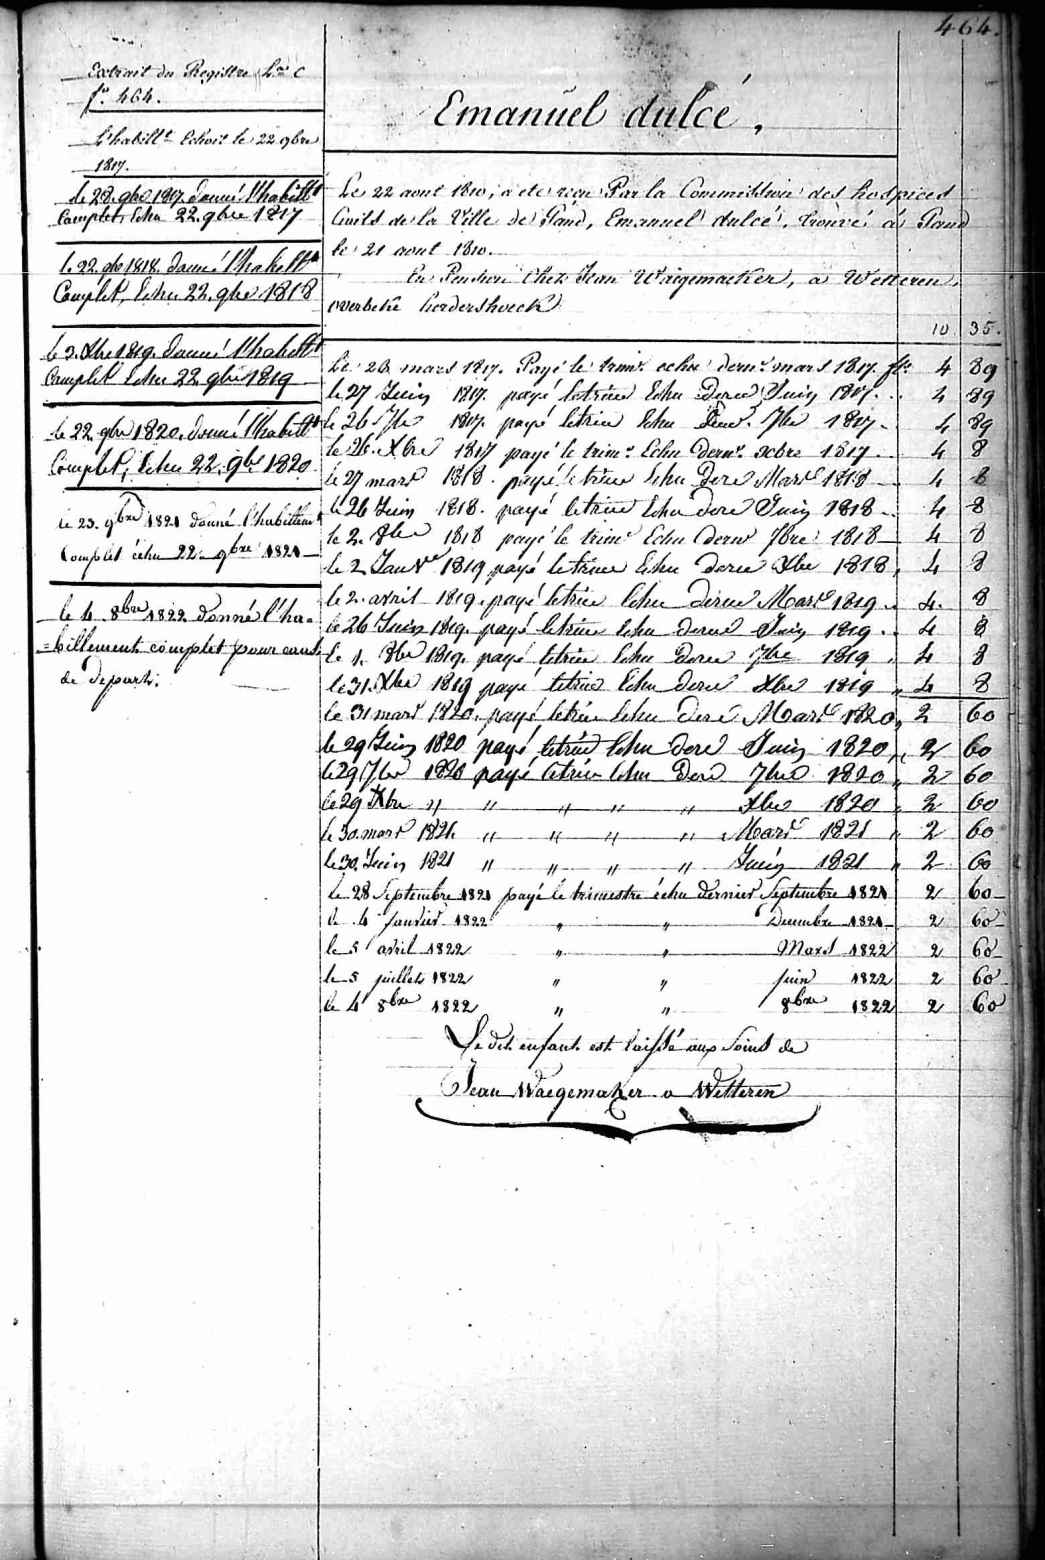 464.
Extrait du Registre L.re C
f.o 464.
L'habill.t Echoit le 22 9bre
1817.
le 28. 9bre 1817. donné l'habill.t
Complet, Echu 22. 9bre 1817
le 22. 9bre 1818. donné l'habill.t
Complet, Echu 22. 9bre 1818
le 3. Xbre 1819. donné l'habill.t
Complet Echu 22 9bre 1819
le 22. 9bre 1820. donné l'habill.t
Complet, Echu 22. 9bre 1820
le 23. 9bre 1821 donné l'habillem.t
Complet échu 22 9bre 1821
le 4. 8bre 1822 donné l'ha=
=billement complet pour cause
de depart.
Emanuel dulcé.
Le 22 aout 1810, a été reçu Par la Commission des hospices
Civils de la Ville de Gand, Emanuel dulcé, trouvé à Gand
le 21 aout 1810.
En Pension Chez Jean Waegemaeker, à Wetteren,
overbeke
10 35.
Le 26 mars 1817. Payé le trim.e echu dern.r mars 1817. 4 89
le 27 Juin 1817. payé le trim Echu Dere Juin 1817. 4 89
le 26 7bre 1817. payé le trim Echu Dern.r 7bre 1817. 4 89
le 26. Xbre 1817 payé le trim.e Echu dern.r xbre 1817. 4 8
le 27 mars 1818. payé le trim Echu Dere Mars 1818 4 8
le 26 Juin 1818. payé le trim Echu dere Juin 1818 4 8
le 2. 8bre 1818 payé le trim.e Echu dern.r 7bre 1818 4 8
le 2 Janv.r 1819 payé le trim Echu derre Xbre 1818, 4 8
le 2. avril 1819. payé le trim Echu derne Mars 1819. 4. 8
le 26 Juin 1819. payé le trim Echu derne Juin 1819. 4 8
le 1. 8bre 1819. payé le trim Echu derne 7bre 1819, 4 8
le 31. Xbre 1819 payé le trim Echu dere Xbre 1819 " 4 8
le 31 mars 1820. payé le trim Echu dere Mars 1820, 2 60
le 29 Juin 1820 payé le trim Echu dere Juin 1820, 2 60
le 29 7bre 1820 payé le trim Echu Dere 7bre 1820 " 2 60
le 29 Xbre " " " " " Xbre 1820 " 2 60
le 30. mars 1821. " " " " Mars 1821 " 2 60
le 30. Juin 1821 " " " " Juin 1821 " 2 60
le 28 Septembre 1821 payé le trimestre échu dernier Septembre 1821 2 60
le 4 janvier 1822 " " Decembre 1821 2 60
le 5 avril 1822 " " Mars 1822 2 60
le 5 juillet 1822 " " juin 1822 2 60
le 4 8bre 1822 " " 8bre 1822 2 60
Le dit enfant est laissé aux soins de
Jean Waegemaker a Wetteren